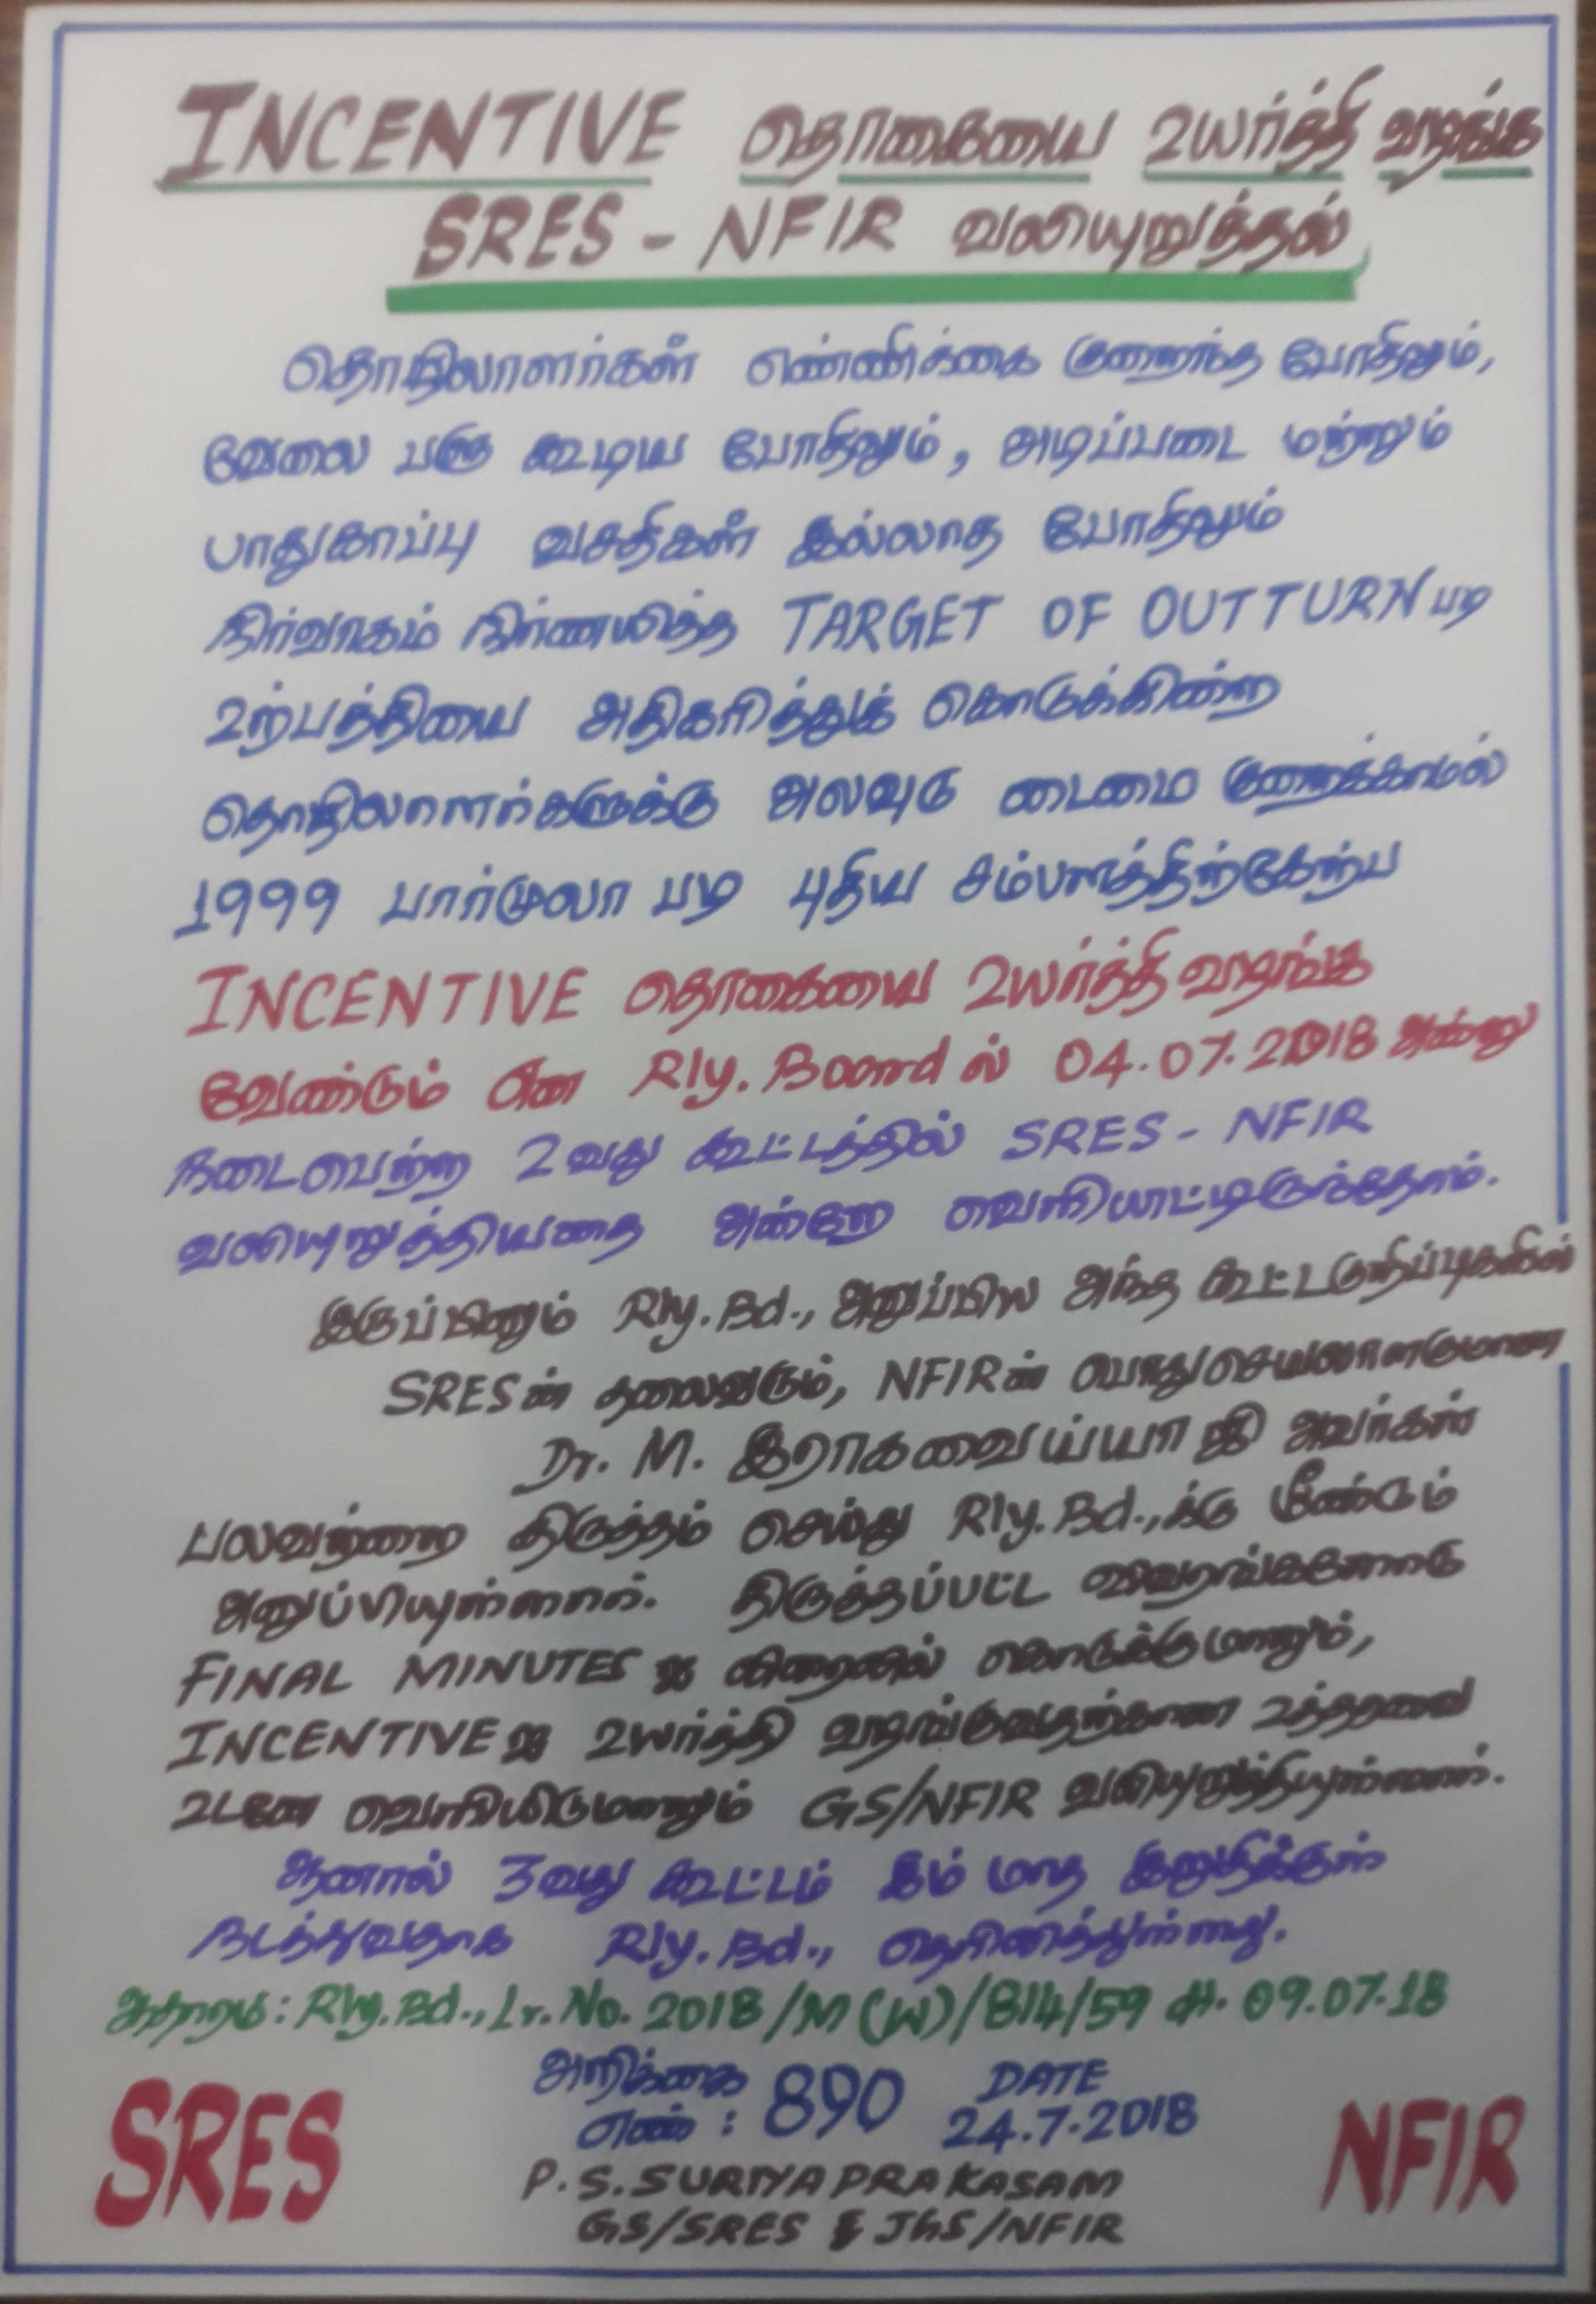 INCENTIVE தொகையை உயர்த்தி வழங்க
SRES - NFIR வலியுறுத்தல்
தொழிலாளர்கள் எண்ணிக்கை குறைந்த போதிலும்,
வேலை பளு கூடிய போதிலும், அடிப்படை மற்றும்
பாதுகாப்பு வசதிகள் இல்லாத போதிலும்
நிர்வாகம் நிர்ணயித்த TARGET OF OUTTURN படி
உற்பத்தியை அதிகரித்துக் கொடுக்கின்ற
தொழிலாளர்களுக்கு அலவுடு டைமை குறைக்காமல்
1999 பார்முலா படி புதிய சம்பளத்திற்கேற்ப
INCENTIVE தொகையை உயர்த்தி வழங்க
வேண்டும் என Rly. Board ல் 04.07.2018 அன்று
நடைபெற்ற 2வது கூட்டத்தில் SRES - NFIR
வலியுறுத்தியதை அன்றே வெளியிட்டிருந்தோம்.
இருப்பினும் Rly.Bd., அனுப்பிய அந்த கூட்டகுறிப்புகளில்
SRESன் தலைவரும், NFIRன் பொதுசெயலாளருமான
Dr. M. இராகவைய்யா ஜி அவர்கள்
பலவற்றை திருத்தம் செய்து Rly.Bd.,க்கு மீண்டும்
அனுப்பியுள்ளார். திருத்தப்பட்ட விவரங்களோடு
FINAL MINUTES ஐ விரைவில் கொடுக்குமாறும்,
INCENTIVE ஐ உயர்த்தி வழங்குவதற்கான உத்தரவை
உடனே வெளியிடுமாறும் GS/NFIR வலியுறுத்தியுள்ளார்.
ஆனால் 3வது கூட்டம் இம் மாத இறுதிக்குள்
நடத்துவதாக Rly.Bd., தெரிவித்துள்ளது.
ஆதாரம்: Rly.Bd., Lr.No. 2018/M(W)/814/59 dt. 09.07.18
அறிக்கை
எண் : 890 DATE
24.7.2018
SRES
P.S.SURIYAPRAKASAM
GS/SRES & JGS/NFIR
NFIR